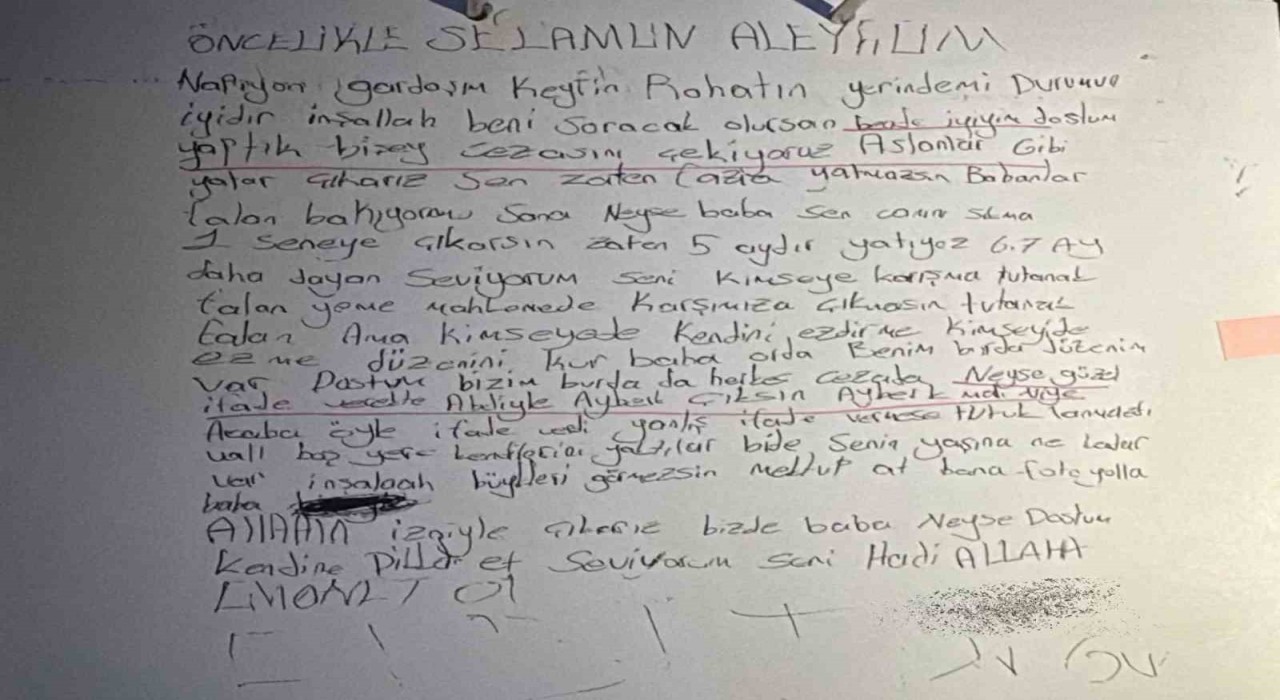 ÖNCELİKLE SELAMUN ALEYKUM
Napıyon gardaşım Keyfin Rahatın yerindemi Durumun
iyidir inşallah beni soracak olursan bende iyiyim dostum
yaptık bişey cezasını çekiyoruz Aslanlar Gibi
yatar çıkarız Sen zaten fazla yatmazsın Babanlar
falan bakıyorAW Sana Neyse baba sen canın SIkma
1 Seneye çıkarsın zaten 5 aydır yatıyoz 6.7 AY
daha dayan Seviyorum seni Kimseye karışma tutanak
falan yeme mahkemede Karşımıza çıkmasın tutanak
falan Ama Kimseyede Kendini ezdirme Kimseyide
ezme düzenini kur baba orda Benim burda düzenim
var Dostum bizim burda da herkes cezada Neyse güzel
ifade Abdiyle Ayberk çıksın Ayberk
Acaba öyle ifade verdi yanlış ifade vermese tutuk
vall boş yere yaktılar bide Senin yaşına ne kadar
var inşalaah büyükleri görmezsin mektup at bana foto yolla
baba
AllAHIN izniyle çıkarız bizde baba Neyse Dostum
Kendine Dikkat et Seviyorum seni Hadi ALLAHA
EMANET Ol